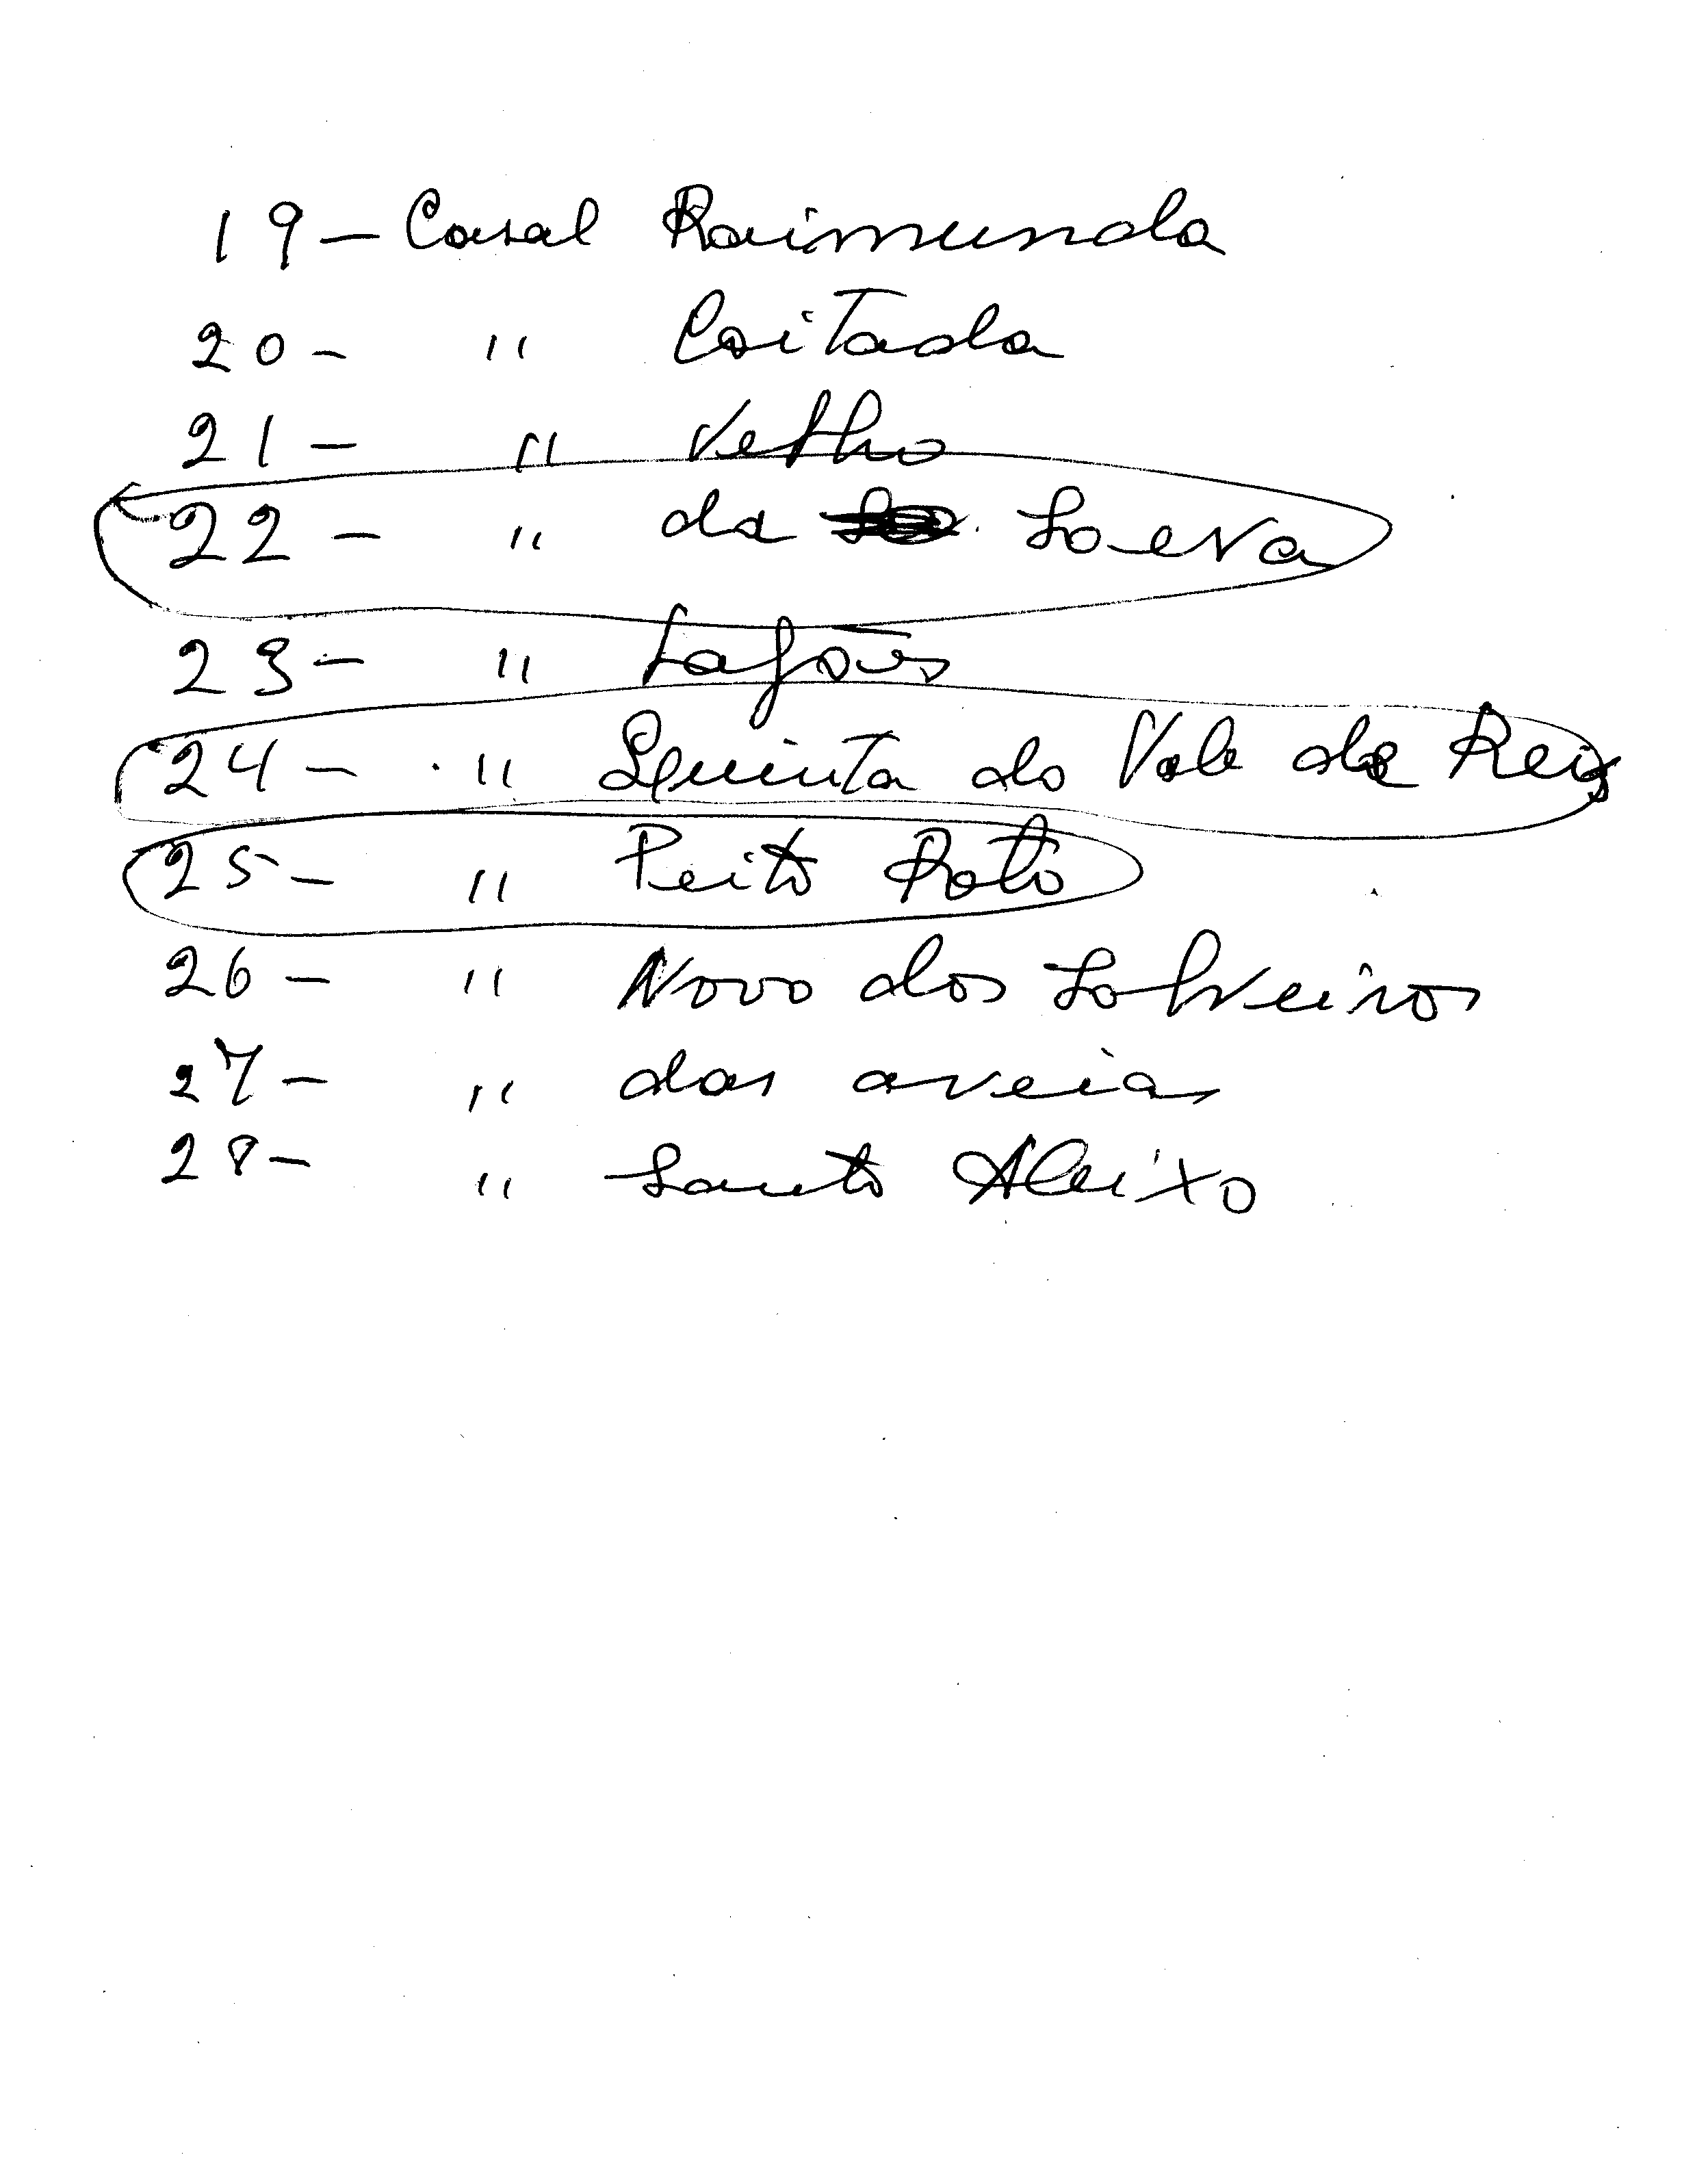 19 - Casal Raimunda
20 - " Coitada
21 - " Velho
22 - " da Soeva
23 - " Lafões
24 - " Quinta do Vale de Reis
25 - " Peito Roto
26 - " Novo dos Sobreiros
27 - " das aveias
28 - " Santo Aleixo